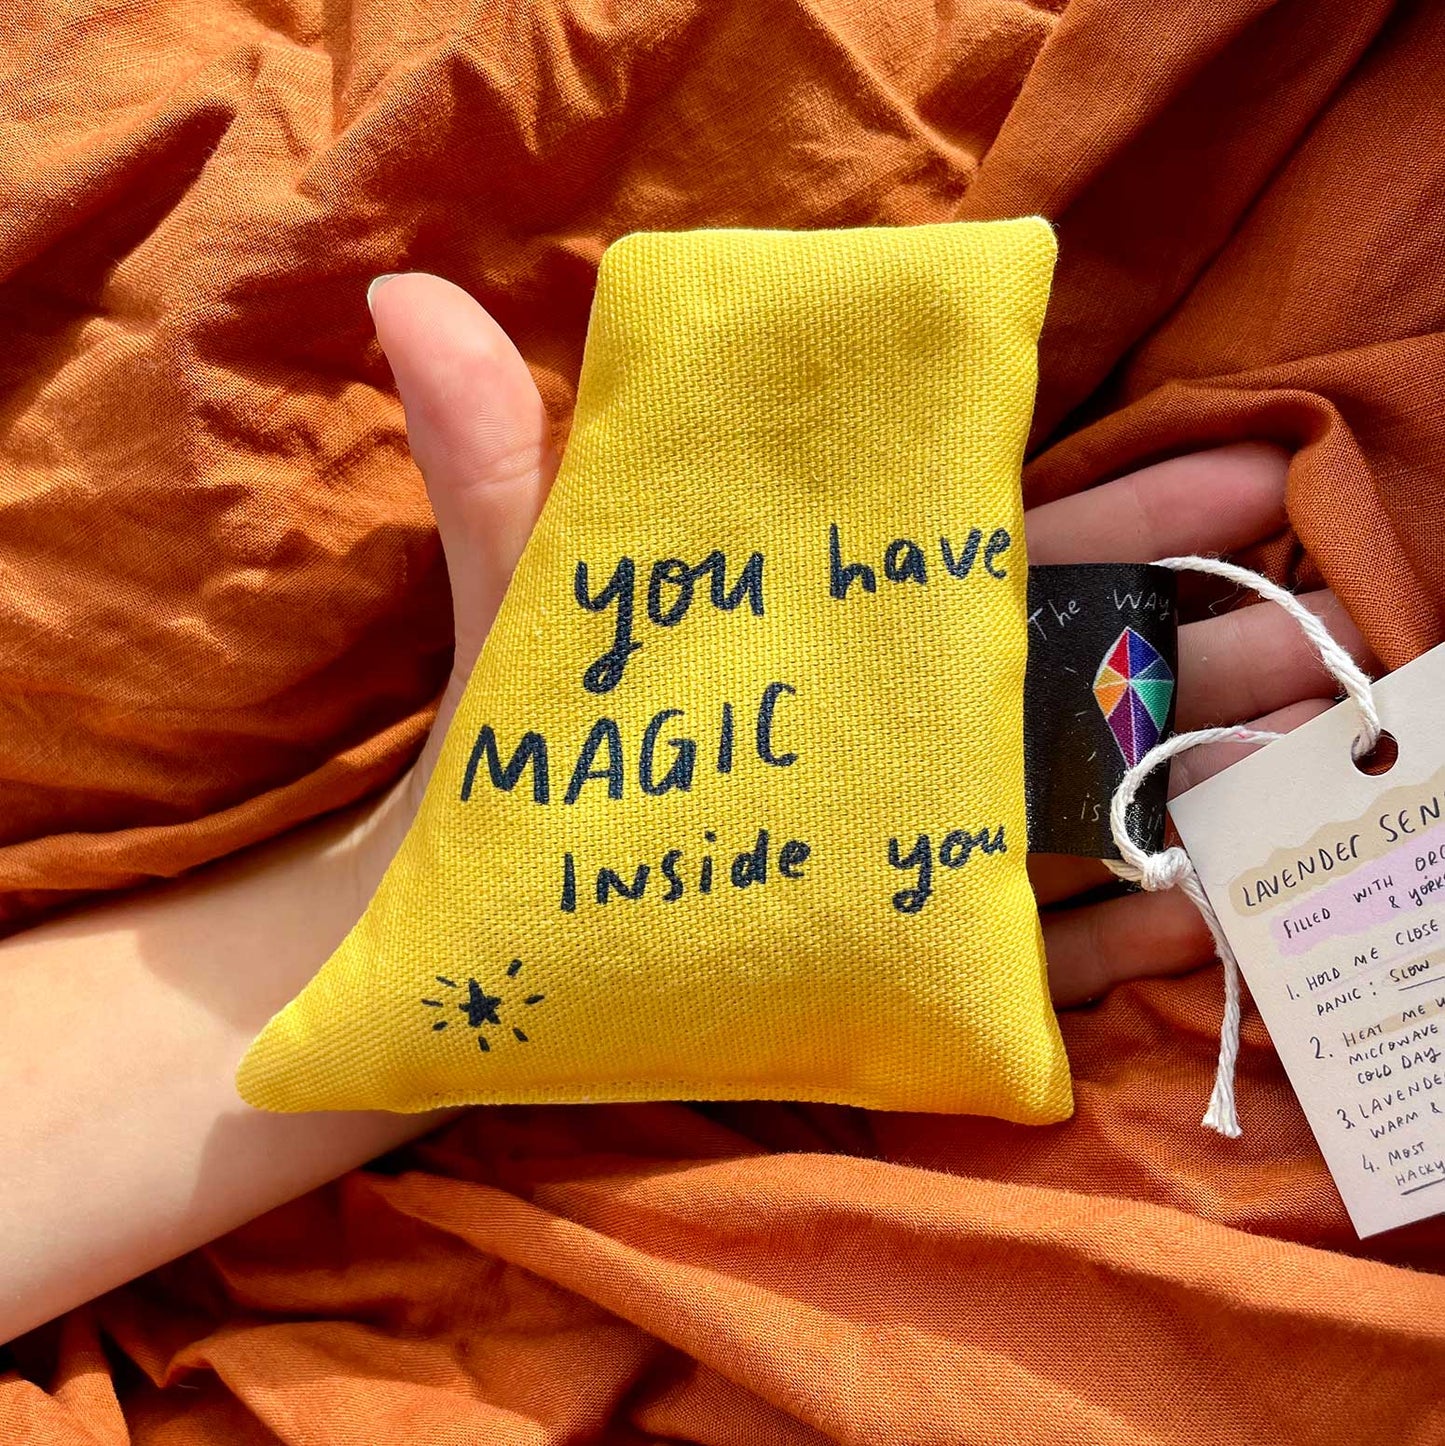 you have
MAGIC
INSide you
The WAY
is in
LAVENDER SEN
FILLED WITH ORG
& YORK
1. HOLD ME CLOSE
PANIC: SLOW
2. HEAT ME
MICROWAVE
COLD DAY
3. LAVENDE
WARM &
4. MOST
HACKY